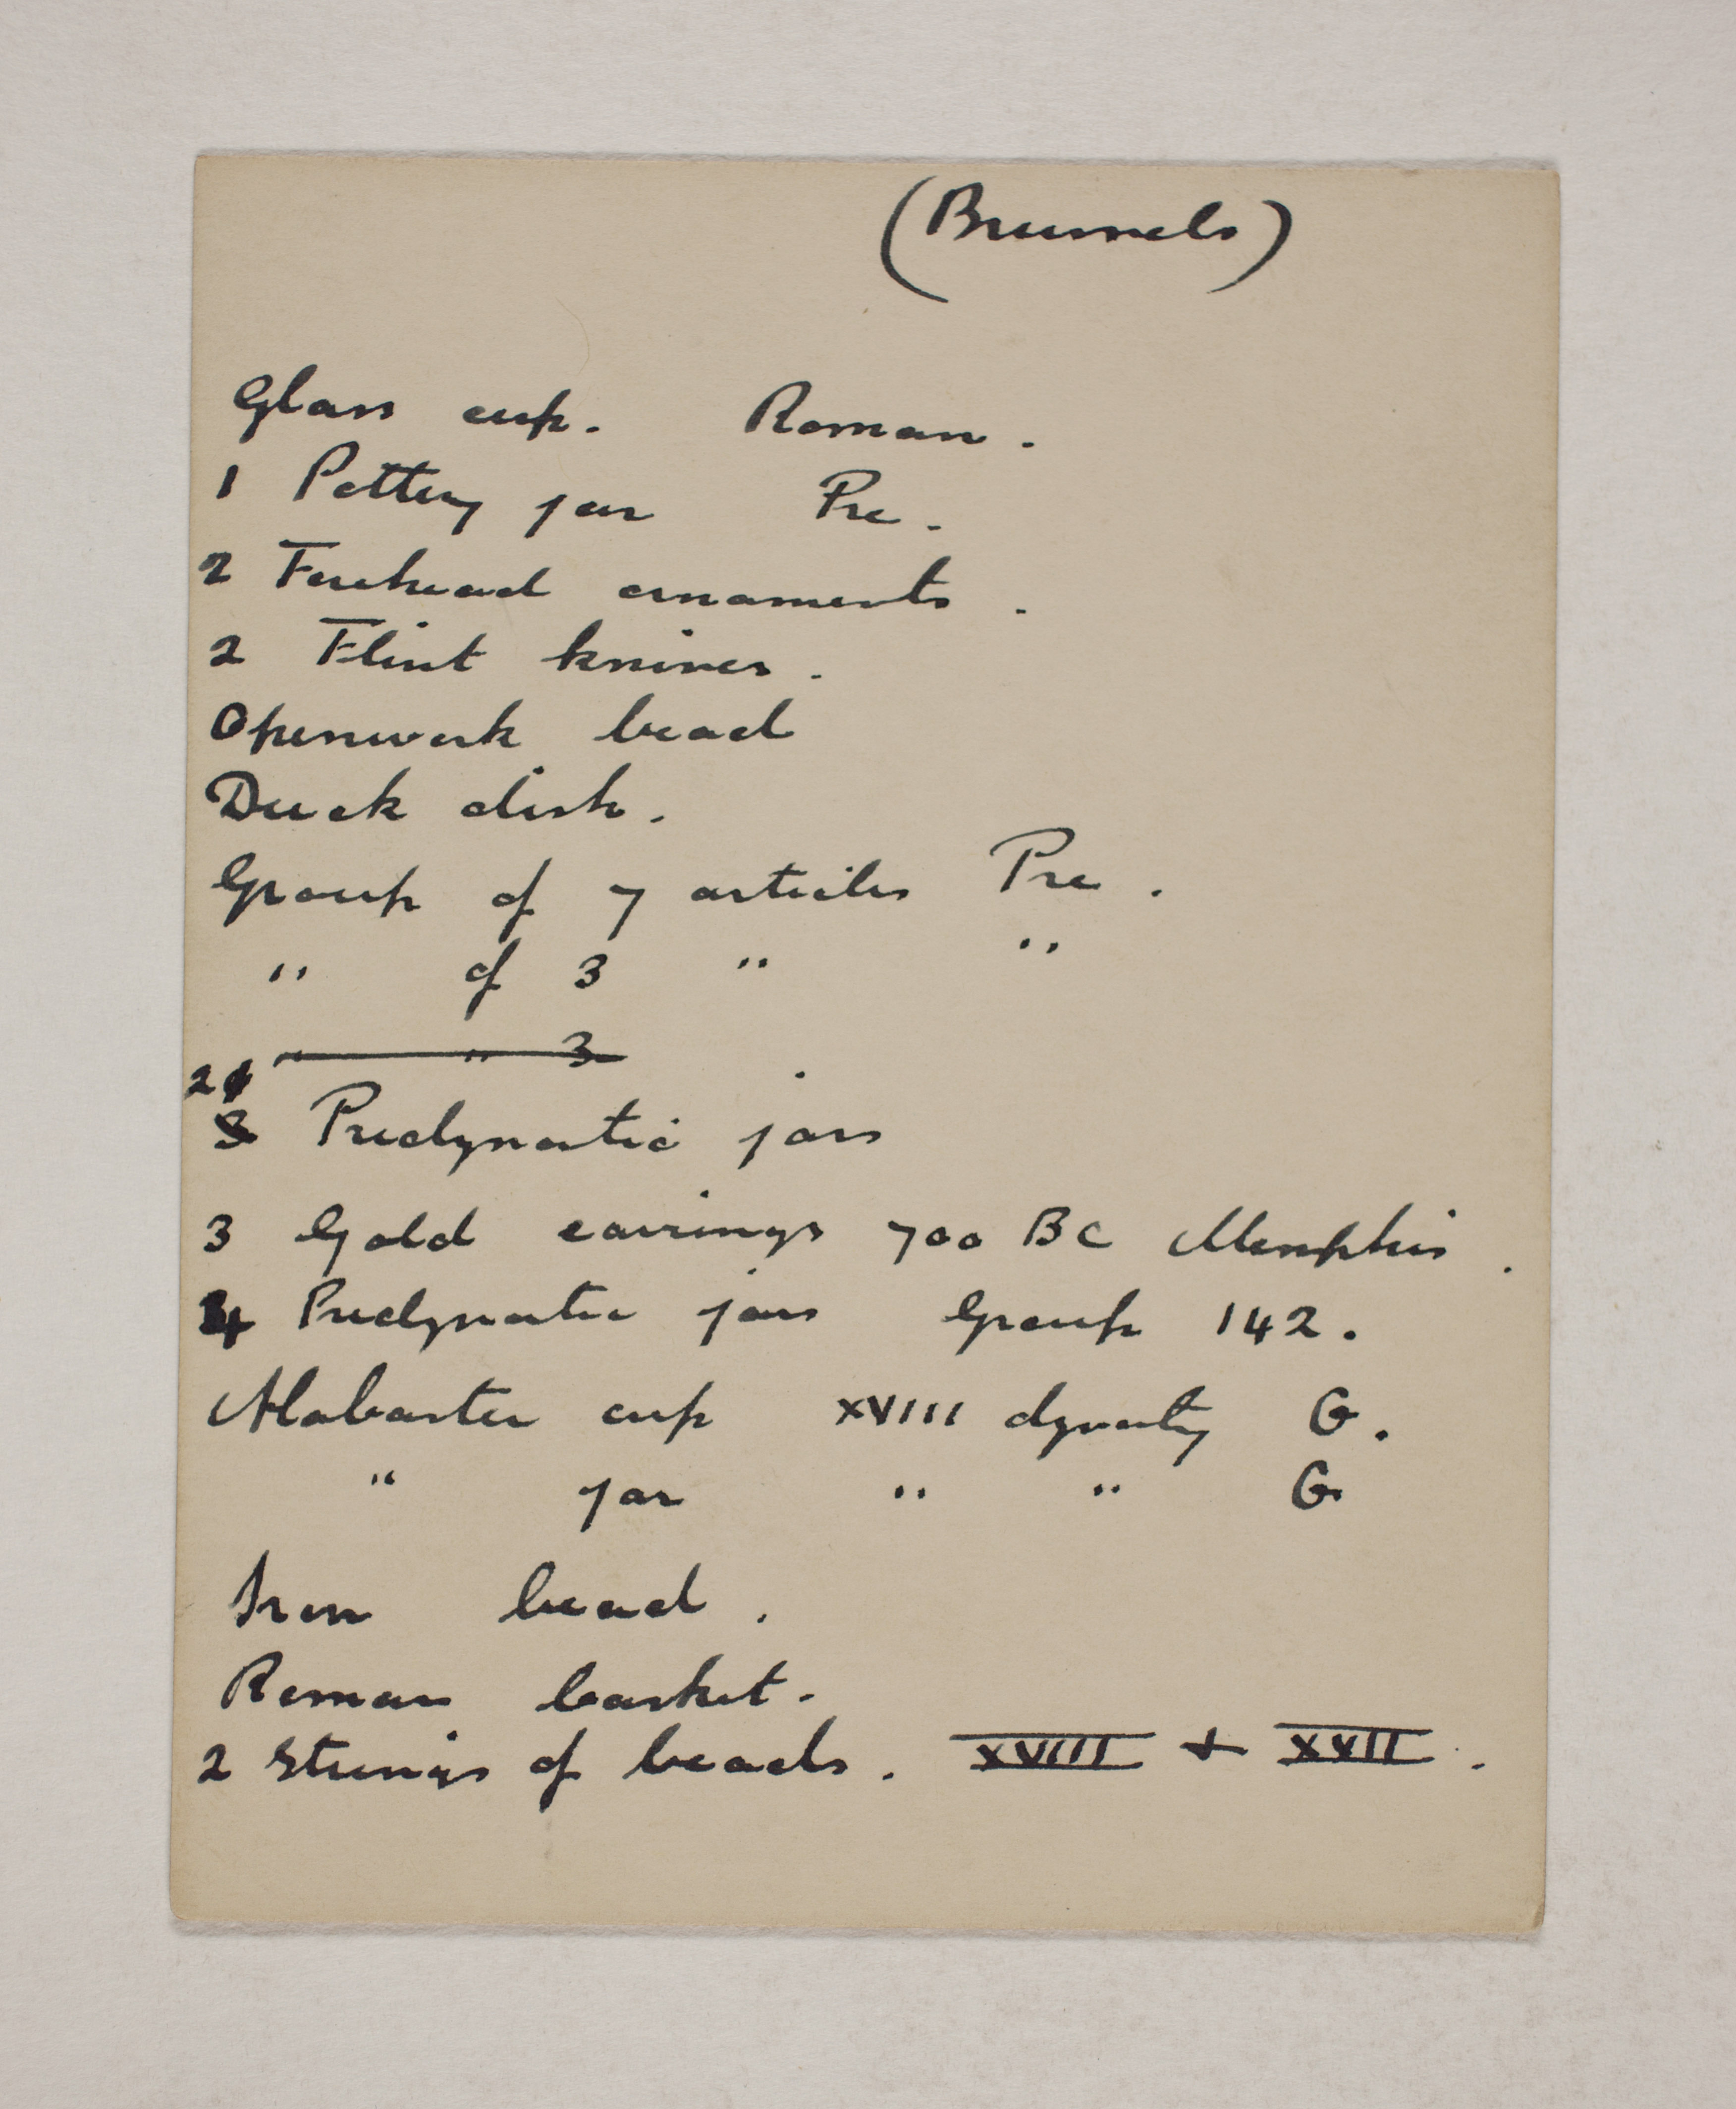 (Brussels)
Glass cup. Roman.
1 Pottery jar Pre.
2 Forehead ornaments.
2 Flint knives.
Openwork bead
Duck dish.
Group of 7 articles Pre.
" of 3 " "
" " 3
2
3 Predynastic jars
3 Gold earrings 700 BC Memphis.
4 Predynastic jars Group 142.
Alabaster cup XVIII dynasty G.
" jar " " G.
Iron bead.
Roman basket.
2 Strings of beads. XVIII + XVII.